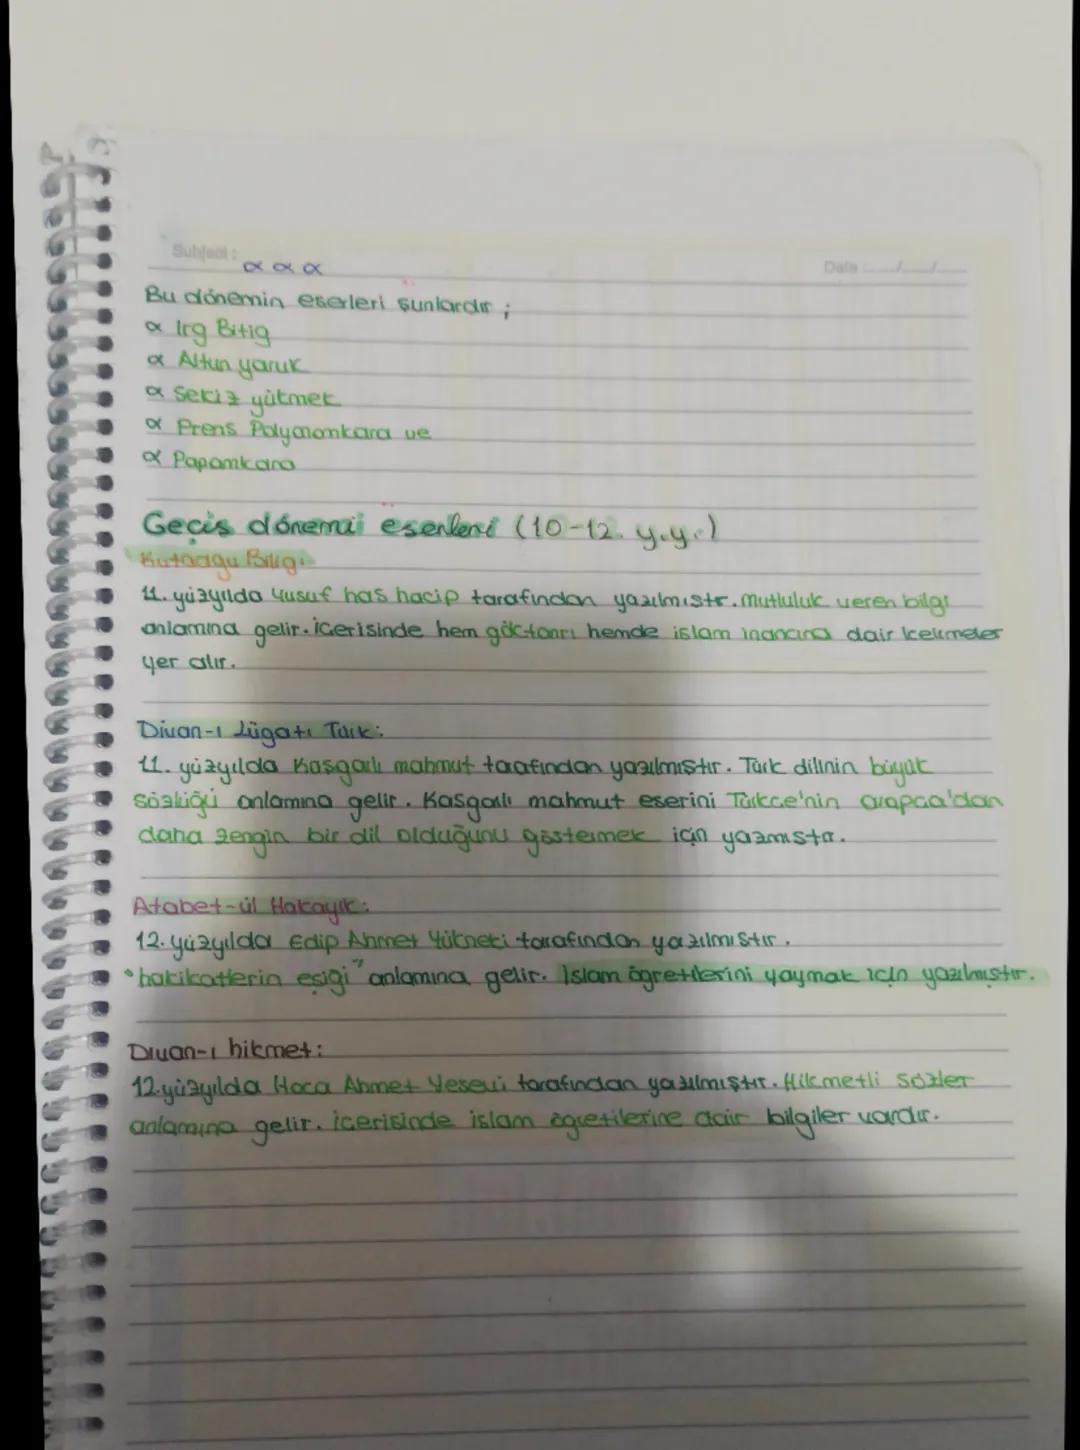 Subject :
α α α
Date :..../..../....
Bu dönemin eserleri şunlardır ;
α Irg Bitig
α Altun yaruk
α Sekiz yükmek
α Prens Polyanonkara ve
α Papamkara
Geçiş dönemi eserleri (10-12. y.y.)
Kutadgu Bilig:
11. yüzyılda Yusuf has hacip tarafından yazılmıştr. mutluluk veren bilgi
anlamına gelir. içerisinde hem göktanrı hemde islam inancına dair kelimeler
yer alır.
Divan-ı Lügatı Türk:
11. yüzyılda Kaşgarlı mahmut tarafından yazılmıştır. Türk dilinin büyük
sözlüğü anlamına gelir. Kaşgarlı mahmut eserini Türkçe'nin arapça'dan
daha zengin bir dil olduğunu göstermek için yazmıştır.
Atabet-ül Hakayık:
12. yüzyılda Edip Ahmet Yükneki tarafından yazılmıştır.
"hakikatlerin eşiği" anlamına gelir. İslam öğretilerini yaymak için yazılmıştır.
Divan-ı hikmet:
12.yüzyılda Hoca Ahmet Yesevi tarafından yazılmıştır. Hikmetli sözler
anlamına gelir. içerisinde islam öğretilerine dair bilgiler vardır.